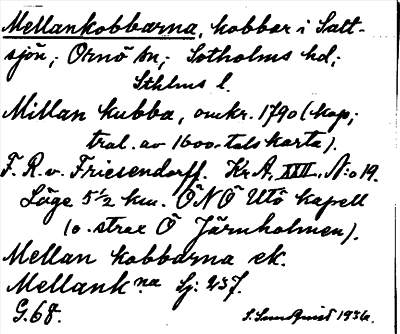 Mellankobbarna, kobbar i Salt-
sjön, Ornö sn; Sotholms hd;
Sthlms l.
Millan kubba, omkr. 1790 (kop;
tral. av 1600-talskarta).
F. R. v. Friesendorff. Kr A, XXII, N:o 19.
Läge 5½ km. ÖNÖ Utö kapell
(o. strax Ö Järnholmen).
Mellan kobbarna ek.
Mellank na Sj: 237.
G. 68.
S. Sundquist 1936.